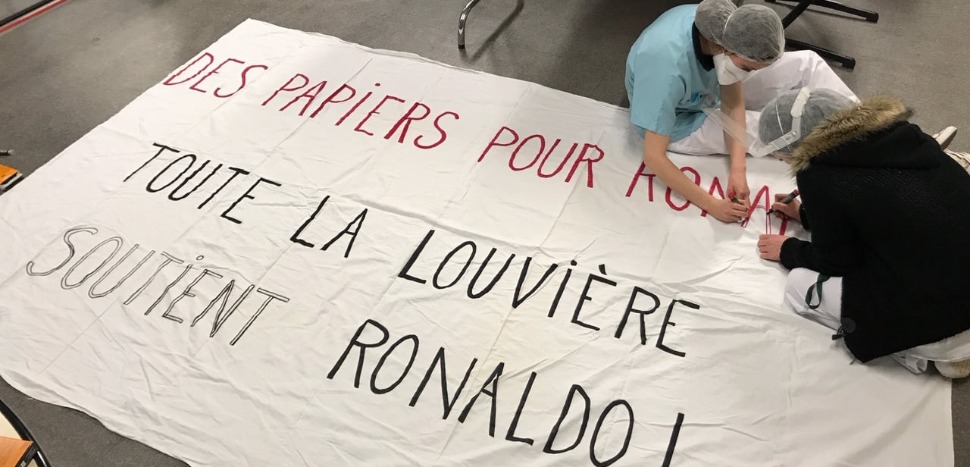 DES PAPiERS POUR RONA
TOUTE LA LOUViÈRE
SOUTiENT RONALDO !